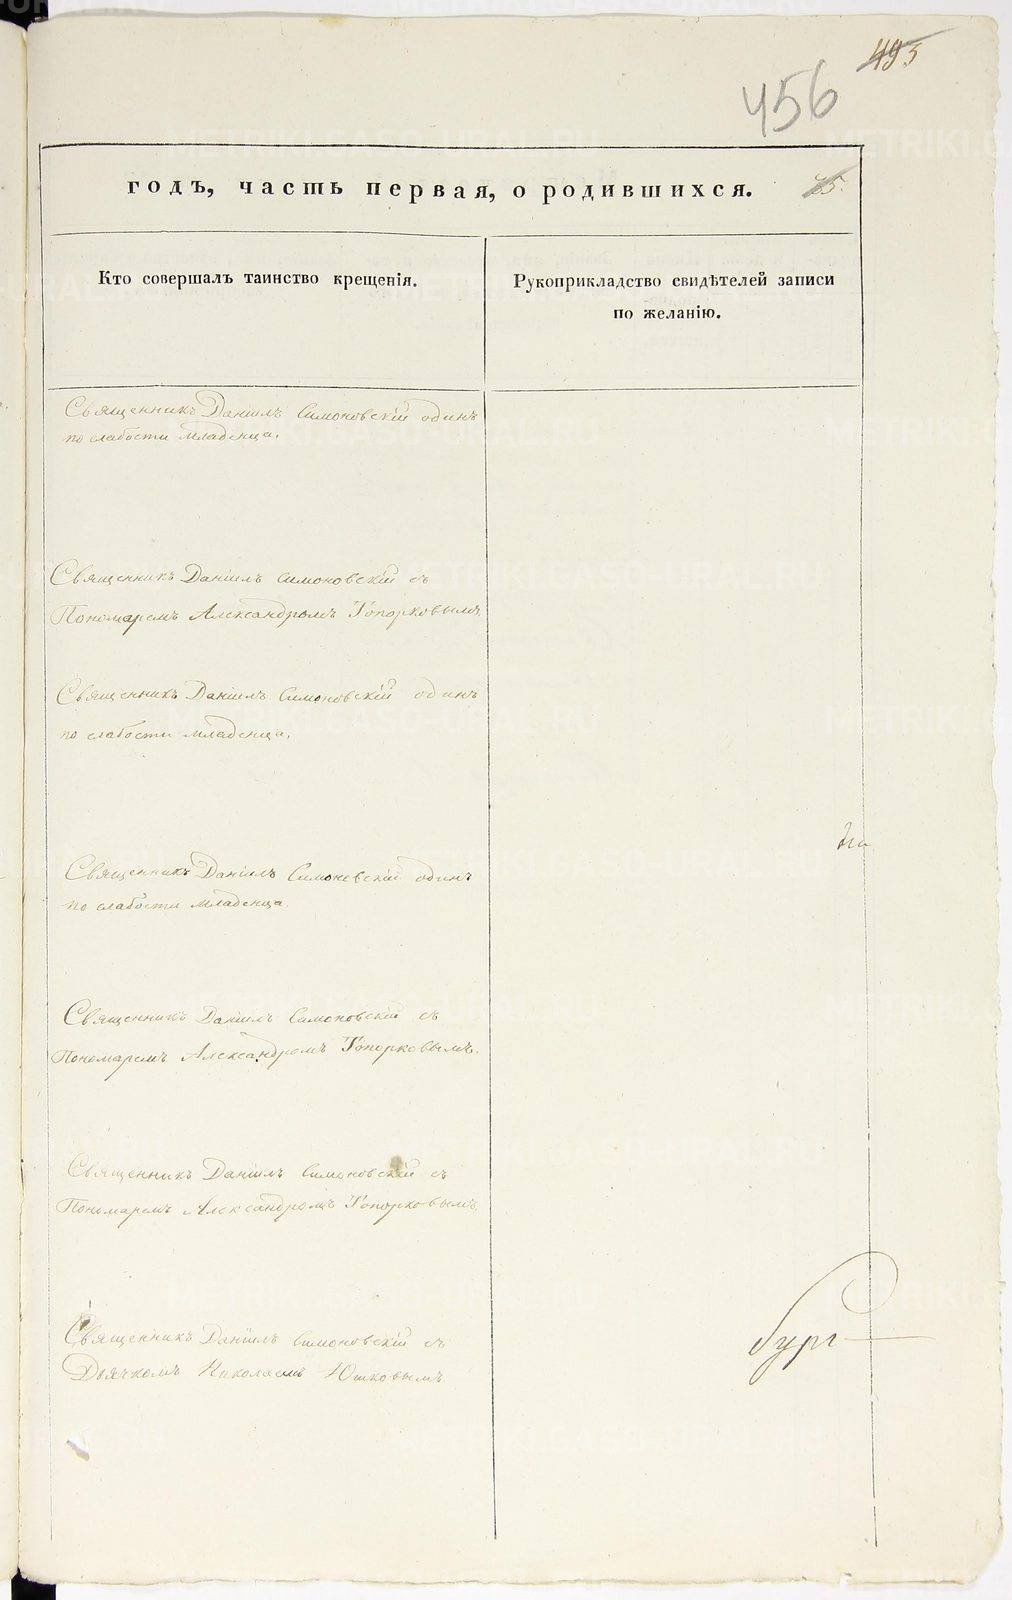 495
456
годъ, часть первая, о родившихся.
45.
Кто совершалъ таинство крещенія.
Рукоприкладство свидѣтелей записи
по желанію.
Священникъ Даніилъ Симоновскій одинъ
по слабости младенца.
Священникъ Даніилъ Симоновскій съ
Пономаремъ Александромъ Топорковымъ
Священникъ Даніилъ Симоновскій одинъ
по слабости младенца.
Священникъ Даніилъ Симоновскій одинъ
по слабости младенца.
Священникъ Даніилъ Симоновскій съ
Пономаремъ Александромъ Топорковымъ.
Священникъ Даніилъ Симоновскій съ
Пономаремъ Александромъ Топорковымъ.
Священникъ Даніилъ Симоновскій съ
Дьячкомъ Николаемъ Юшковымъ.
бург
METRIKI.GASO-URAL.RU